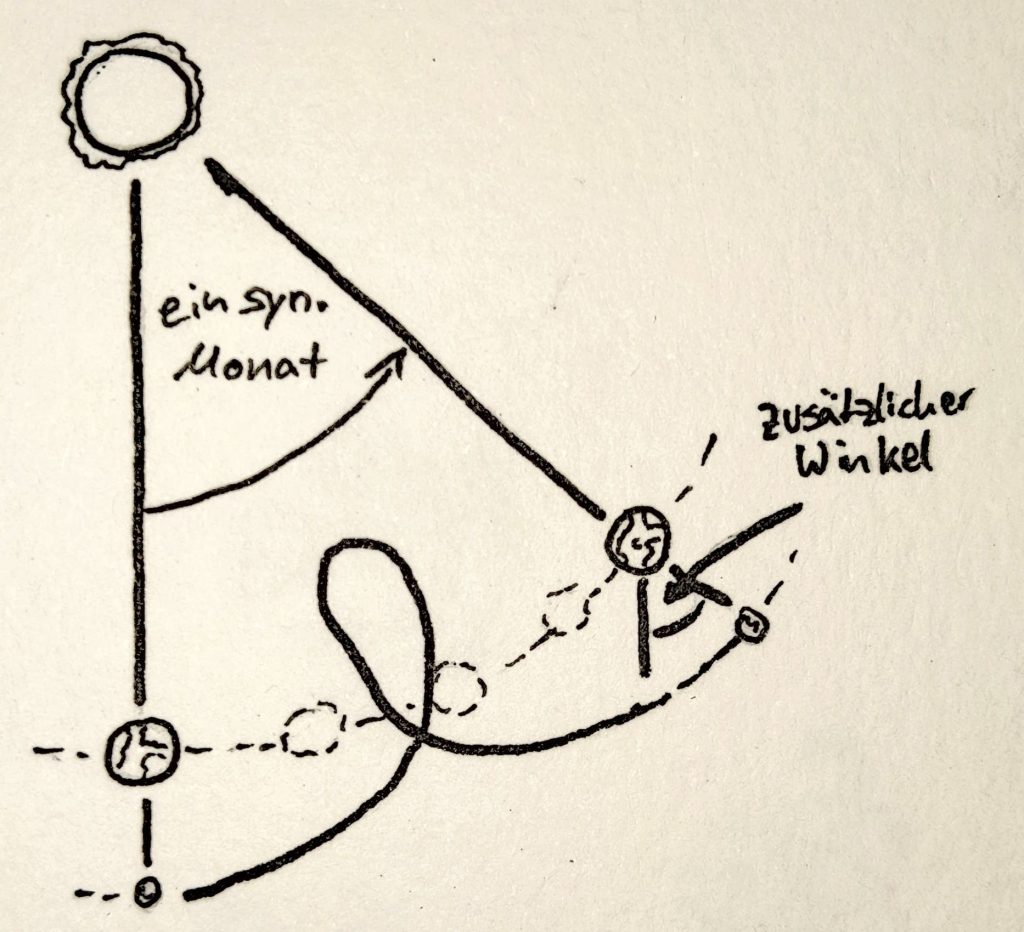 ein syn.
Monat
zusätzlicher
Winkel